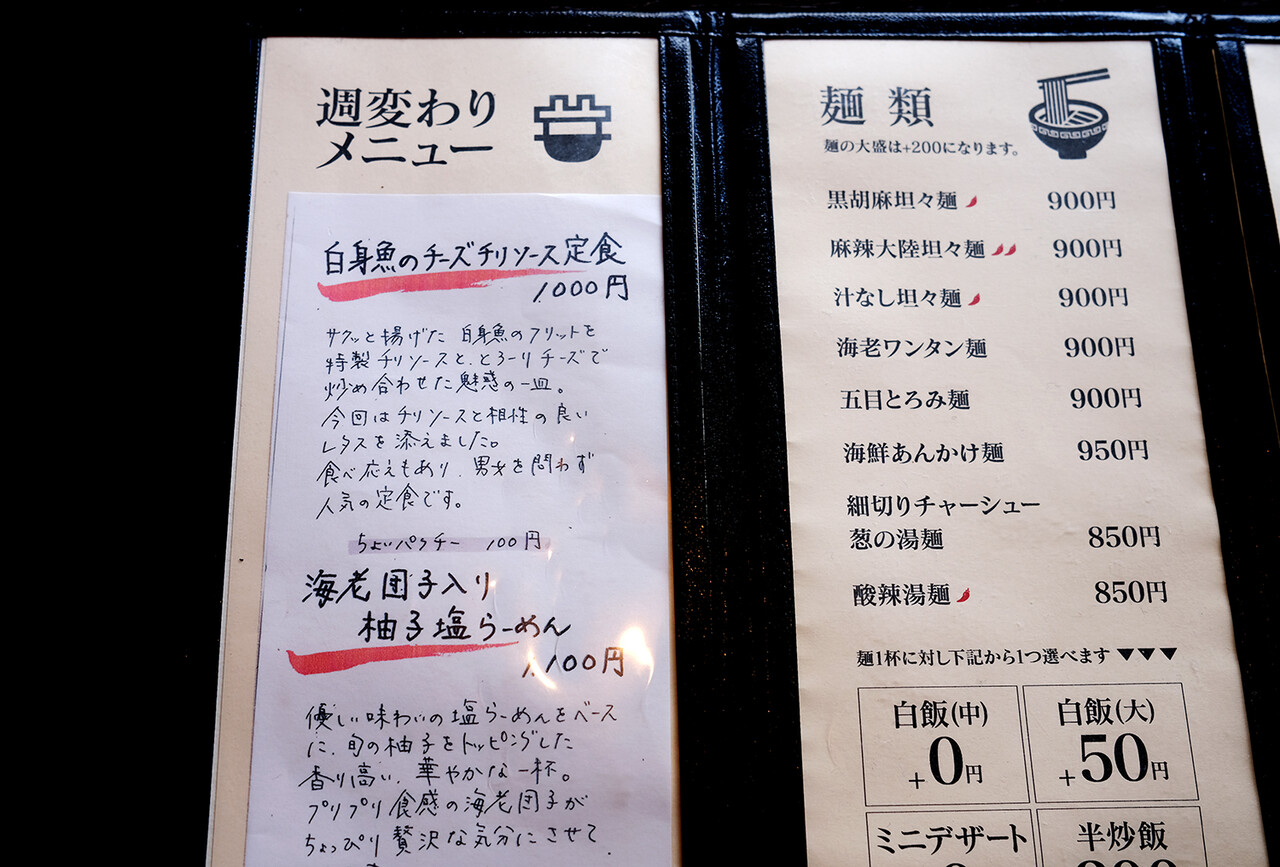 週変わり
メニュー
白身魚のチーズチリソース定食
1000円
サクッと揚げた 白身魚のフリットを
特製チリソースと、とろーりチーズで
炒め合わせた魅惑の一皿。
今回はチリソースと相性の良い
レタスを添えました。
食べ応えもあり、男女を問わず
人気の定食です。
ちょいパクチー 100円
海老団子入り
柚子塩らーめん
1,100円
優しい味わいの塩らーめんをベース
に、旬の柚子をトッピングした
香り高い、華やかな一杯。
プリプリ食感の海老団子が
ちょっぴり贅沢な気分にさせて
麺類
麺の大盛は+200になります。
黒胡麻坦々麺 900円
麻辣大陸坦々麺 900円
汁なし坦々麺 900円
海老ワンタン麺 900円
五目とろみ麺 900円
海鮮あんかけ麺 950円
細切りチャーシュー
葱の湯麺 850円
酸辣湯麺 850円
麺1杯に対し下記から1つ選べます ▼▼▼
白飯(中) 白飯(大)
+0円 +50円
ミニデザート 半炒飯